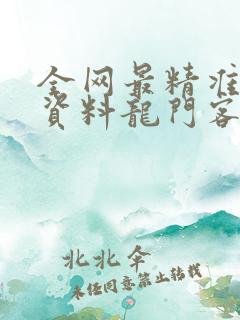 全网最精准
资料龍門客
北北伞
未经同意禁止转载